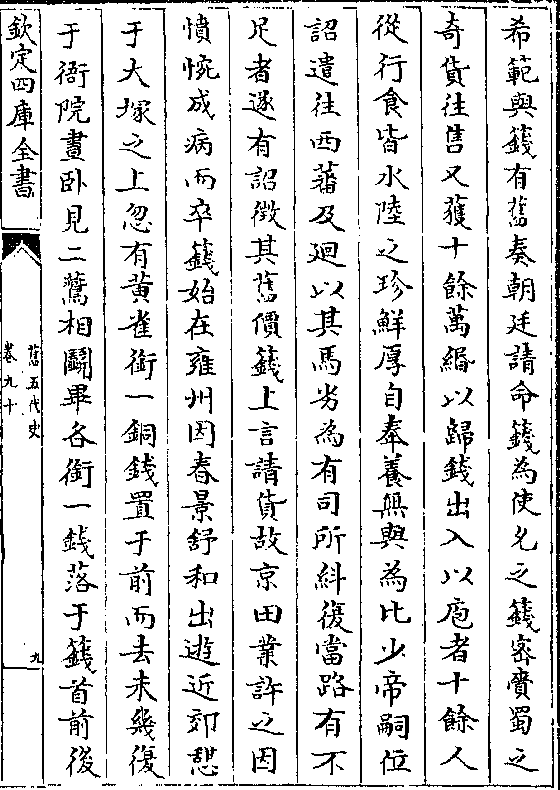 希範與籛有舊奏朝廷請命籛為使允之籛密賫蜀之
奇貨往售又獲十餘萬緡以歸籛出入以庖者十餘人
從行食皆水陸之珍鮮厚自奉養無與為比少帝嗣位
詔遣往西蕃及廻以其馬劣為有司所糾復當路有不
足者遂有詔徵其舊價籛上言請貨故京田業許之因
憤惋成病而卒籛始在雍州因春景舒和出遊近郊憇
于大塚之上忽有黄雀銜一銅錢置于前而去未幾復
于衙院晝卧見二鷰相鬬畢各銜一錢落于籛首前後
欽定四庫全書
舊五代史
卷九十
九